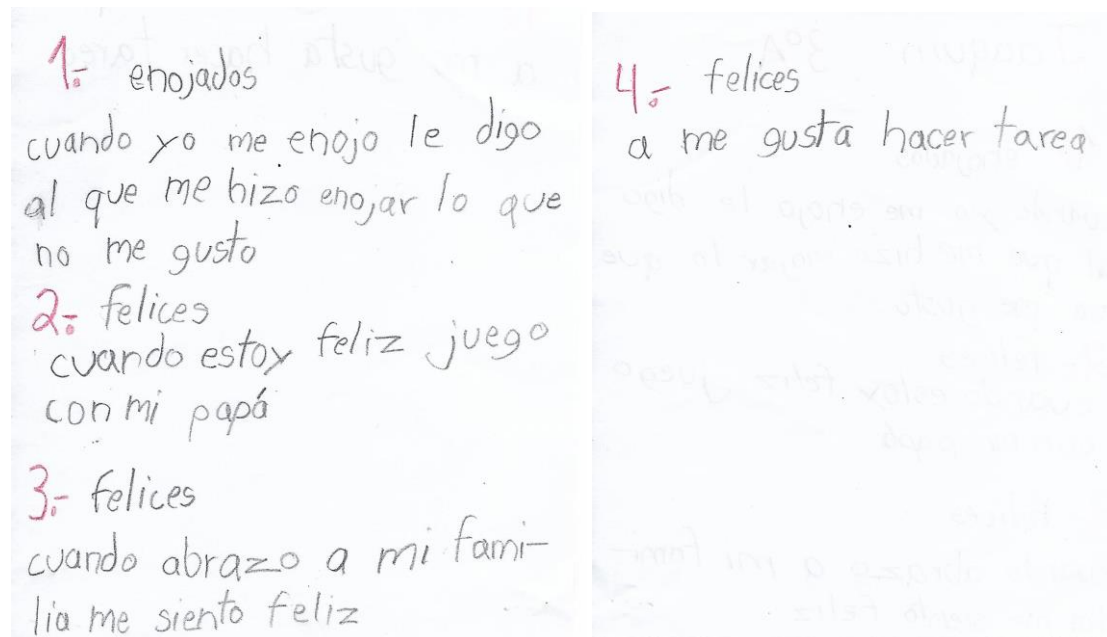 1.- enojados
cuando yo me enojo le digo
al que me hizo enojar lo que
no me gusto
2.- felices
cuando estoy feliz juego
con mi papá
3.- felices
cuando abrazo a mi fami-
lia me siento feliz
4.- felices
a me gusta hacer tarea